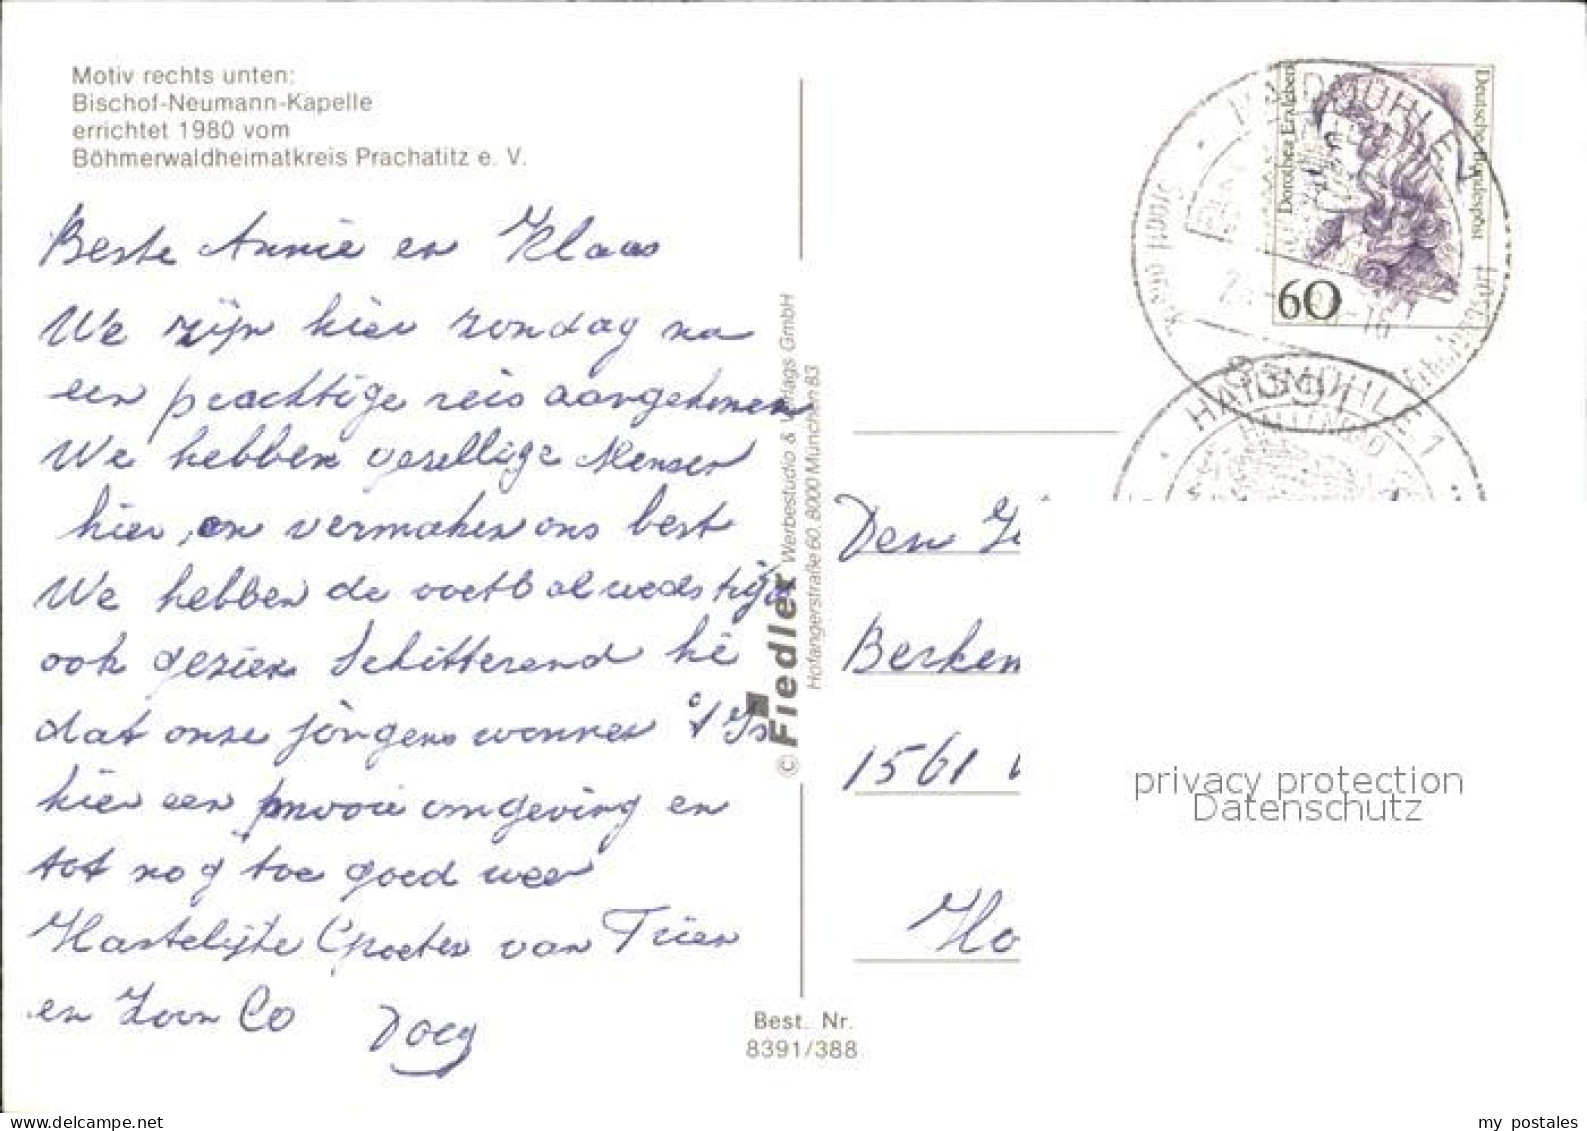 Motiv rechts unten:
Bischof-Neumann-Kapelle
errichtet 1980 vom
Böhmerwaldheimatkreis Prachatitz e. V.
Beste Annie en Klaas
We zijn hier zondag na
een prachtige reis aangekomen
We hebben gezellige Mensen
hier, en vermaken ons best
We hebben de voetbalwedstrijd
ook gezien Schitterend hé
dat onze jongens wonnen
hier een mooie omgeving en
tot nog toe goed weer
Hartelijke Groeten van Trien
en Zoon Co
Doeg
© Fiedler Werbestudio & Verlags GmbH
Hofangerstraße 60, 8000 München 83
Best. Nr.
8391/388
Deutsche Bundespost
Dorothea Erxleben
60
HAIDMÜHLE
HAIDMÜHLE 1
Den
Berken
1561
Ho
privacy protection
Datenschutz
www.delcampe.net
my postales